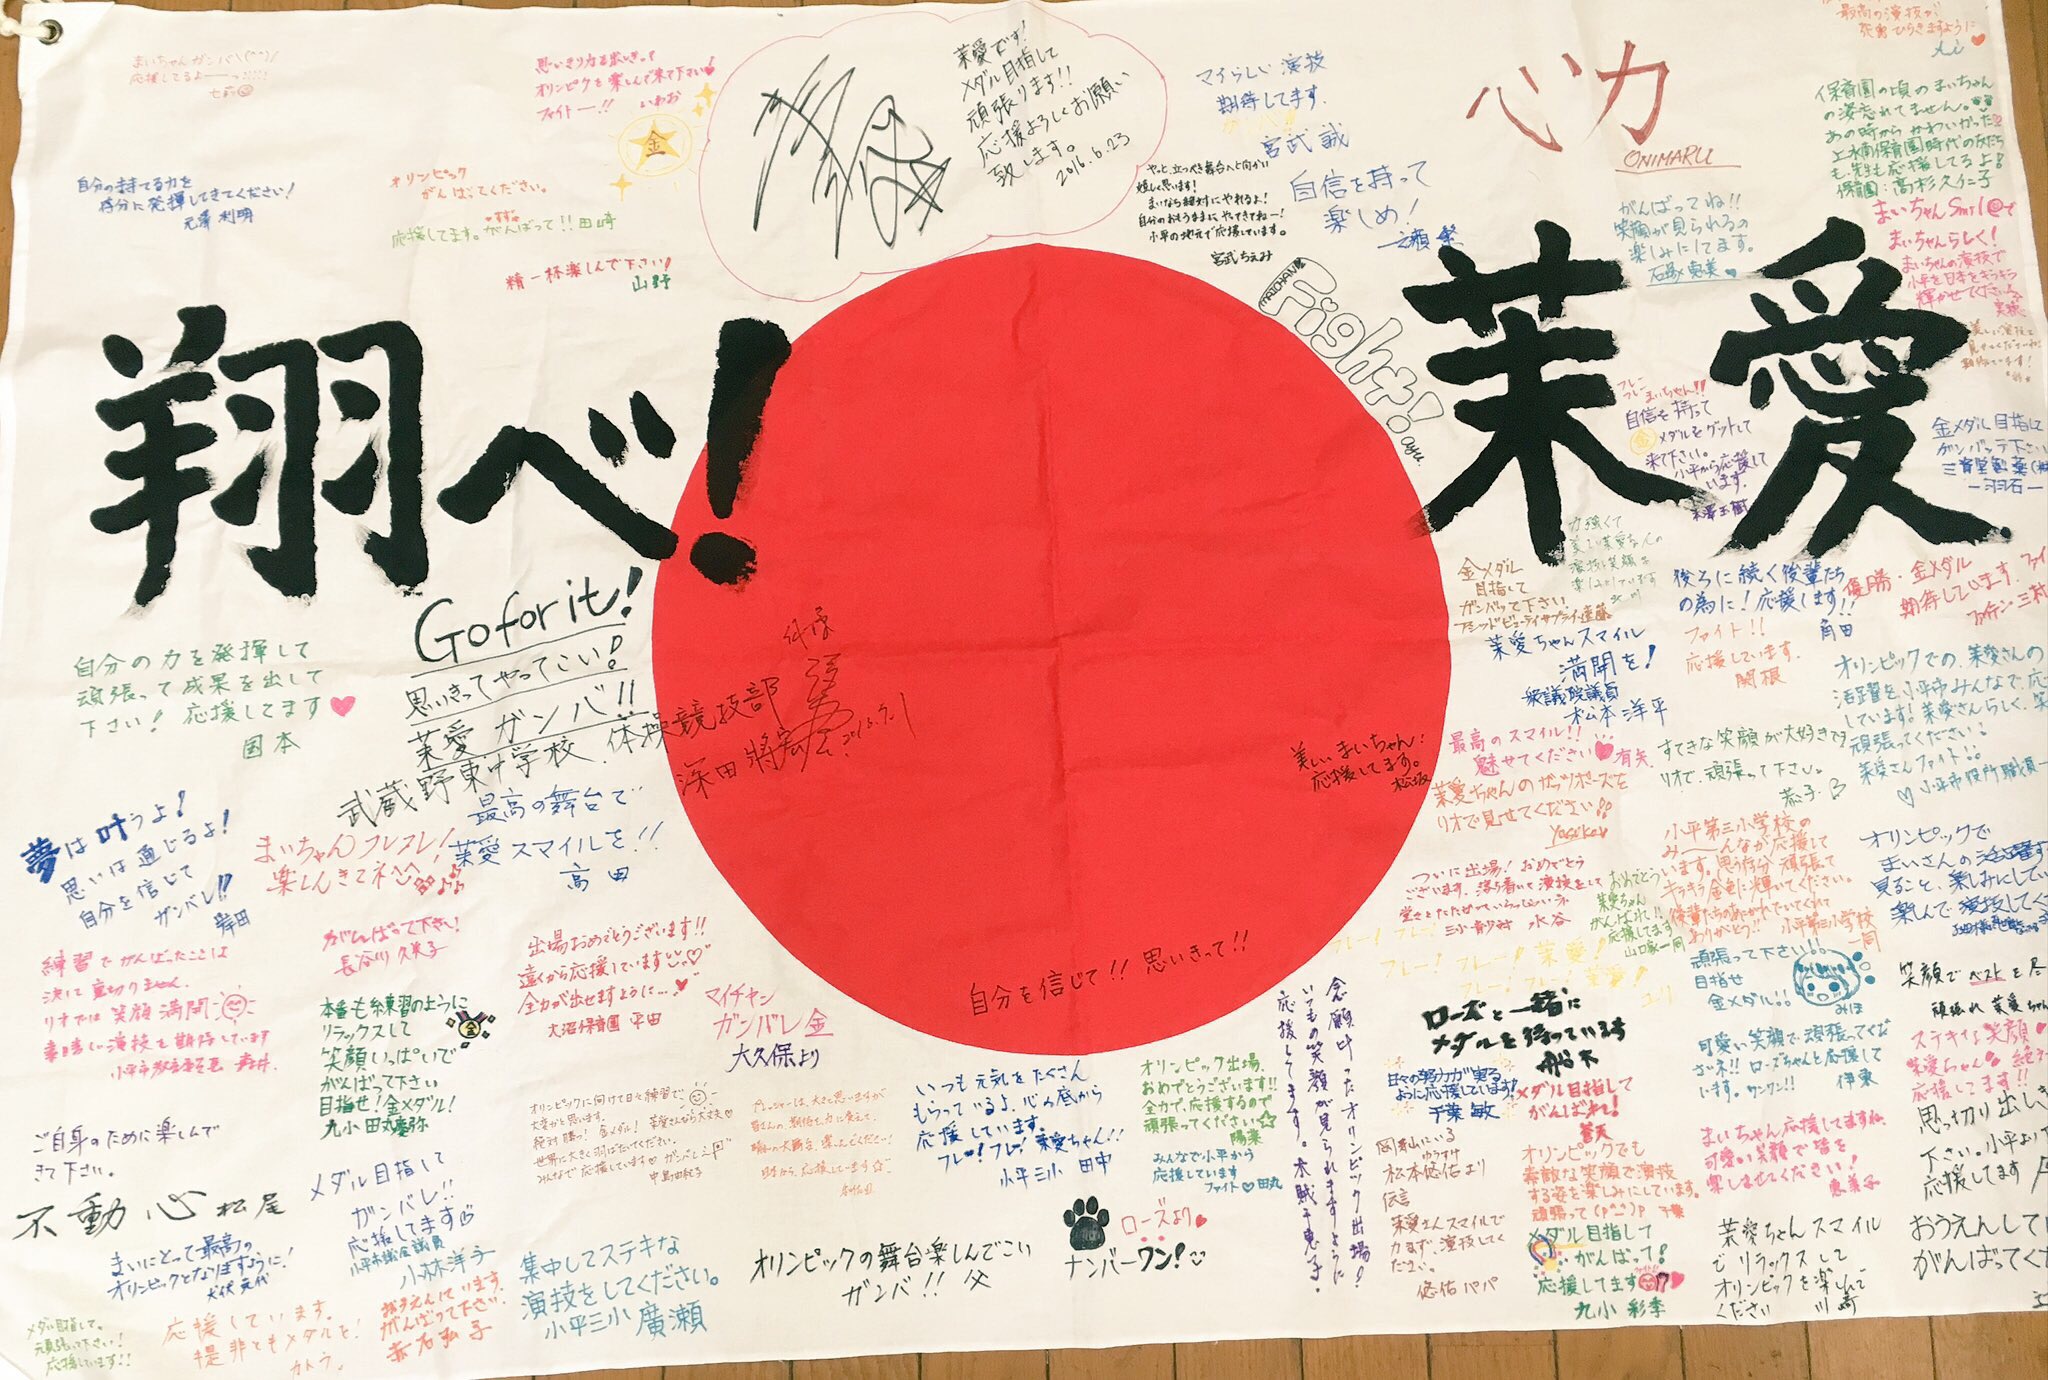 翔べ!
茉愛
茉愛です!
メダル目指して
頑張ります!!
応援よろしくお願い
致します。
2016.6.23
まいちゃんガンバ\(^^)/
思いきり力を出しきって
オリンピックを楽しんで来て下さい
ファイトー!! いわお
金
自分の持てる力を
存分に発揮してきてください!
オリンピック
がんばってください。
応援してます。がんばって!! 田崎
精一杯楽しんで下さい!
山野
マイらしい演技
期待してます。
宮武 誠
やっと、立つべき舞台へと向かい
嬉しく思います!
まいなら絶対にやれるよ!
自分のおもうままにやってきてねー!
小平の地元で応援しています。
宮武ちえみ
自信を持って
楽しめ!
心力
ONIMARU
がんばってね!!
笑顔が見られるの
楽しみにしてます。
石塚 恵美
保育園の頃のまいちゃん
の姿忘れてません。
あの時からかわいかった
上水南保育園時代の友だち
も、先生も応援してるよ!
保育園:高杉久仁子
まいちゃんSmileで
まいちゃんらしく!
まいちゃんの演技で
小平を日本をキラキラ
輝かせてください
MAICHAN
Fight!
aya.
フレーフレーまいちゃん!!
自信を持って
金メダルをゲットして
来て下さい。
小平から応援して
います。
金メダル目指して
ガンバッテ下さい
Go for it!
思いきってやってこい!
茉愛 ガンバ!!
武蔵野東中学校 体操競技部
自分の力を発揮して
頑張って成果を出して
下さい! 応援してます
国本
最高の舞台で
茉愛スマイルを!!
高田
夢は叶うよ!
思いは通じるよ!
自分を信じて
ガンバレ!!
岸田
まいちゃんフレフレ!
楽しんできてネ
がんばって下さい!
長谷川 久美子
出場おめでとうございます!!
遠くから応援しています
全力が出せますように…
大沼保育園 平田
マイチャン
ガンバレ 金
大久保より
練習でがんばったことは
決して裏切りません。
リオでは笑顔満開
素晴しい演技を期待しています
本番も練習のように
リラックスして
笑顔いっぱいで
がんばって下さい
目指せ!金メダル!
九小 田丸慶弥
自分を信じて!! 思いきって!!
美しいまいちゃん!
応援してます。
松坂
金メダル
目指して
ガンバって下さい
後ろに続く後輩たち
の為に!応援します!!
角田
優勝・金メダル
期待しています
ファイト!!
応援しています。
関根
茉愛ちゃんスマイル
満開を!
衆議院議員
松本洋平
最高のスマイル!!
魅せてください 有矢
茉愛ちゃんのガッツポーズを
リオで見せてください!!
すてきな笑顔が大好きです
リオで、頑張って下さい。
恭子
オリンピックでの、茉愛さんの
活躍を小平市みんなで、応
しています!茉愛さんらしく、笑
頑張ってください!
茉愛さんファイト!!
小平市役所職員一
小平第三小学校の
み~んなが応援して
います。思う存分頑張って
キラキラ金色に輝いてください。
後輩たちのあこがれでいてくれて
ありがとう!! 小平第三小学校
一同
ついに出場!おめでとう
ございます。落ち着いて演技をして
おめでとう
茉愛ちゃん
がんばれ!!
応援してます
山口家一同
フレー!フレー!
フレー!フレー!茉愛!
フレー!フレー!茉愛!
ユリ
頑張って下さい!!
目指せ
金メダル!!
みほ
オリンピックで
まいさんの活躍す
見ること、楽しみにしてい
楽しんで演技してく
笑顔でベストを尽
頑張れ 茉愛ちゃん
ローズと一緒に
メダルを待っています
船木
日々の努力が実る
ように応援しています!
千葉 敏
メダル目指して
がんばれ!
可愛い笑顔で頑張ってくだ
さい!!ローズちゃんと応援して
います。ワンワン!! 伊東
ステキな笑顔
茉愛ちゃん 絶対
応援してます!!
思い切り出し
下さい。小平より
応援してます
ご自身のために楽しんで
きて下さい。
不動心 松尾
メダル目指して
ガンバレ!!
応援してます
小平市議会議員
小林洋子
まいにとって最高の
オリンピックとなりますように!
メダル目指して、
頑張って下さい!
応援しています!!
応援しています。
是非ともメダルを!
カトウ。
おうえんしています。
がんばって下さい。
赤石弘子
集中してステキな
演技をしてください。
小平三小 廣瀬
オリンピックに向けて日々練習で、
大変かと思います。
絶対勝つ!金メダル! 茉愛さんなら大丈夫
世界に大きく羽ばたいてください。
みんなで応援しています
中島由紀子
いつも元気をたくさん
もらっているよ、心の底から
応援しています。
フレー!フレー!茉愛ちゃん!!
小平三小 田中
オリンピック出場、
おめでとうございます!!
全力で、応援するので
頑張ってください
陽菜
みんなで小平から
応援しています
ファイト♡田丸
オリンピックの舞台楽しんでこい
ガンバ!! 父
ローズより
ナンバーワン!
念願叶ったオリンピック出場!
いつもの笑顔が見られますように
応援してます。
岡山にいる
松本悠佑より
伝言
茉愛さんスマイルで
力まず、演技してく
ださい。
悠佑パパ
オリンピックでも
素敵な笑顔で演技
する姿を楽しみにしています。
頑張って(p^-^)p 千葉
メダル目指して
がんばって!
応援してます
九小 彩季
まいちゃん応援してますね
可愛い笑顔で皆を
楽しませてください!
恵美子
茉愛ちゃんスマイル
でリラックスして
オリンピックを楽しんで
ください 川崎
おうえんして
がんばってくだ